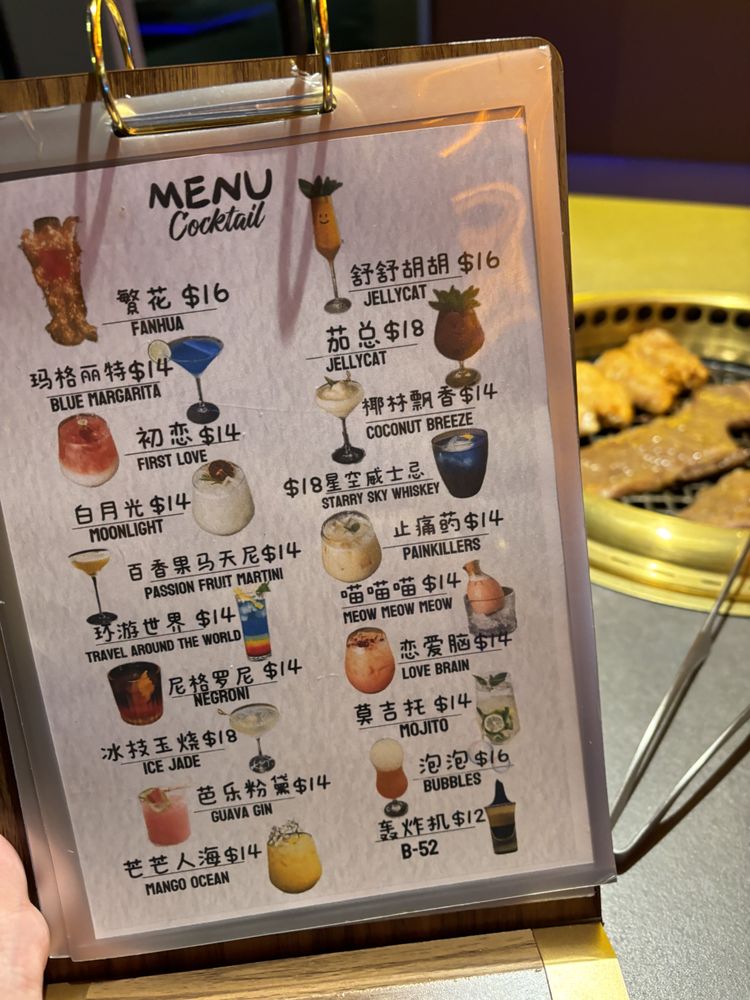 MENU
Cocktail
繁花 $16
FANHUA
玛格丽特$14
BLUE MARGARITA
初恋 $14
FIRST LOVE
白月光 $14
MOONLIGHT
百香果马天尼$14
PASSION FRUIT MARTINI
环游世界 $14
TRAVEL AROUND THE WORLD
尼格罗尼 $14
NEGRONI
冰枝玉烧$18
ICE JADE
芭乐粉黛$14
GUAVA GIN
芒芒人海$14
MANGO OCEAN
舒舒胡胡 $16
JELLYCAT
茄总$18
JELLYCAT
椰林飘香$14
COCONUT BREEZE
$18星空威士忌
STARRY SKY WHISKEY
止痛药$14
PAINKILLERS
喵喵喵 $14
MEOW MEOW MEOW
恋爱脑$14
LOVE BRAIN
莫吉托 $14
MOJITO
泡泡$16
BUBBLES
轰炸机$12
B-52